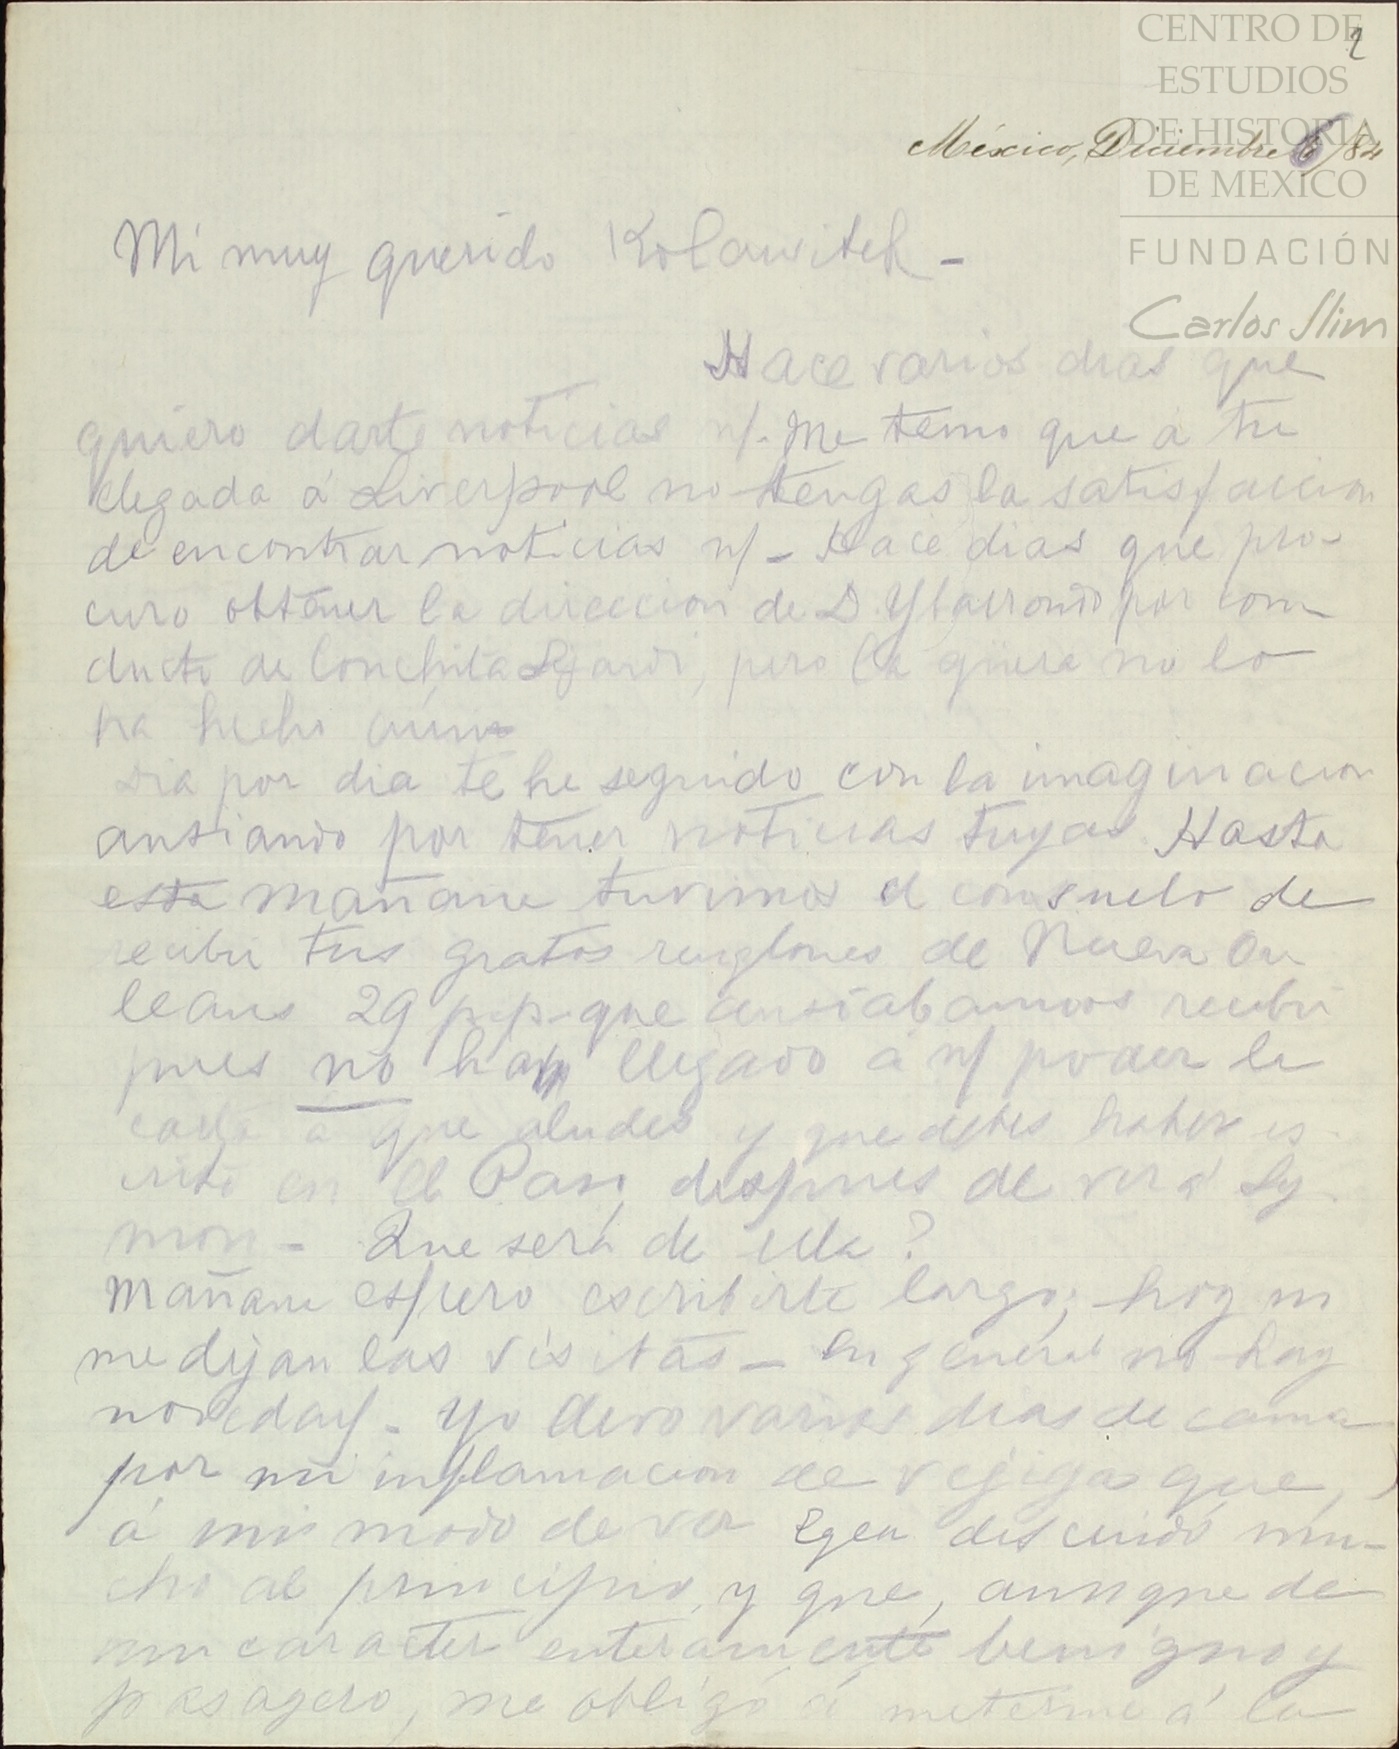 CENTRO DE
ESTUDIOS
DE HISTORIA
DE MEXICO
FUNDACIÓN
Carlos Slim
2
México, Diciembre 6/84
Mi muy querido Kolawitch -
Hace varios dias que
quiero darte noticias n/. Me temo que á tu
llegada á Liverpool no tengas la satisfaccion
de encontrar noticias n/ - Hace dias que pro-
curo obtener la direccion de D. por con
ducto de Conchita, pero la güera no lo
ha hecho aún
Dia por dia te he seguido con la imaginacion
ansiando por tener noticias tuyas. Hasta
esta mañana tuvimos el consuelo de
recibir tus gratos renglones de Nueva Or
leans 29 p.p. que ansiabamos recibir
pues no ha llegado á n/ poder la
carta á que aludes y que debes haber es
crito en el Paso, despues de ver á Sy
mon - Que será de ella?
Mañana espero escribirte largo; hoy ni
me dejan las visitas - En general no hay
novedad. Yo llevo varios dias de cama
por mi inflamacion de vejiga que,
á mi modo de ver Egea descuidó mu-
cho al principio, y que, aunque de
un caracter enteramente benigno y
pasagero, me obligó á meterme á la